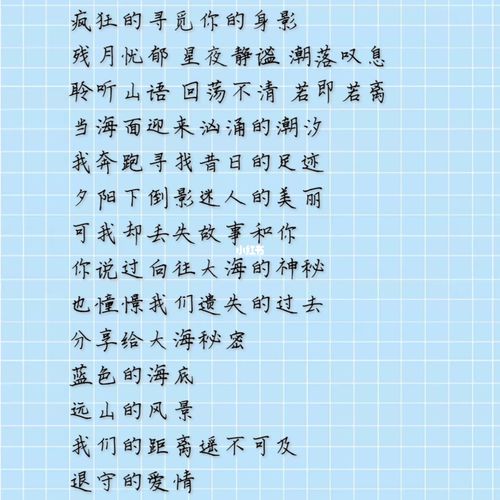 疯狂的寻觅你的身影
残月忧郁 星夜静谧 潮落叹息
聆听山语 回荡不清 若即若离
当海面迎来汹涌的潮汐
我奔跑寻找昔日的足迹
夕阳下倒影迷人的美丽
可我却丢失故事和你
小红书
你说过向往大海的神秘
也憧憬我们遗失的过去
分享给大海秘密
蓝色的海底
远山的风景
我们的距离遥不可及
退守的爱情